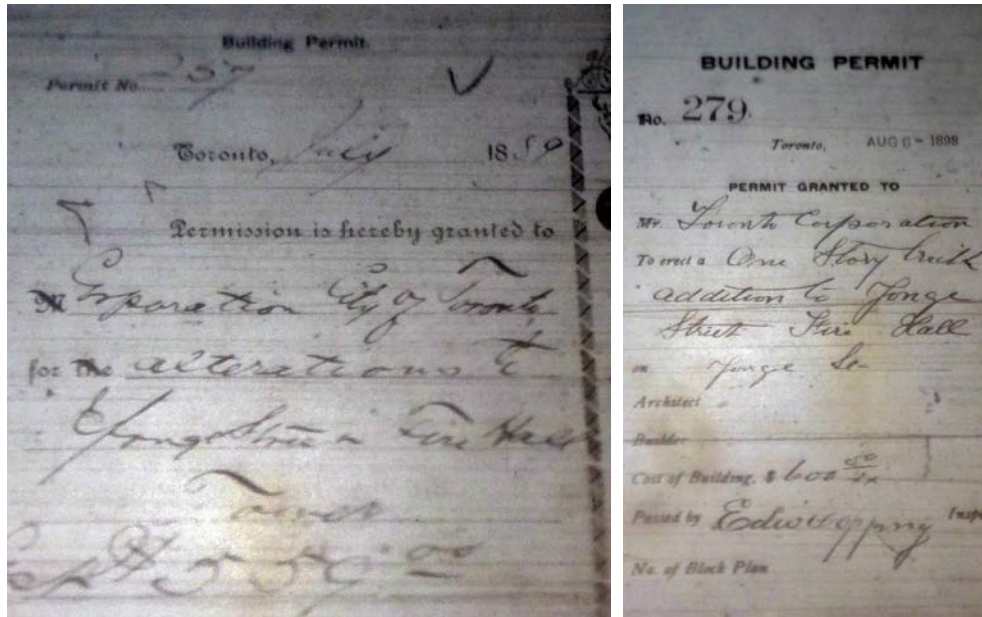 Building Permit.
Permit No. 257
Toronto, July 1889
Permission is hereby granted to
M Corporation City of Toronto
for the alterations to
Yonge Street Fire Hall
Tower
$550.00
BUILDING PERMIT
No. 279
Toronto, AUG 6 - 1898
PERMIT GRANTED TO
Mr. Toronto Corporation
To erect a One Story brick
addition to Yonge
Street Fire Hall
on Yonge St
Architect
Builder
Cost of Building, $ 600 00/xx
Passed by Insp
No. of Block Plan